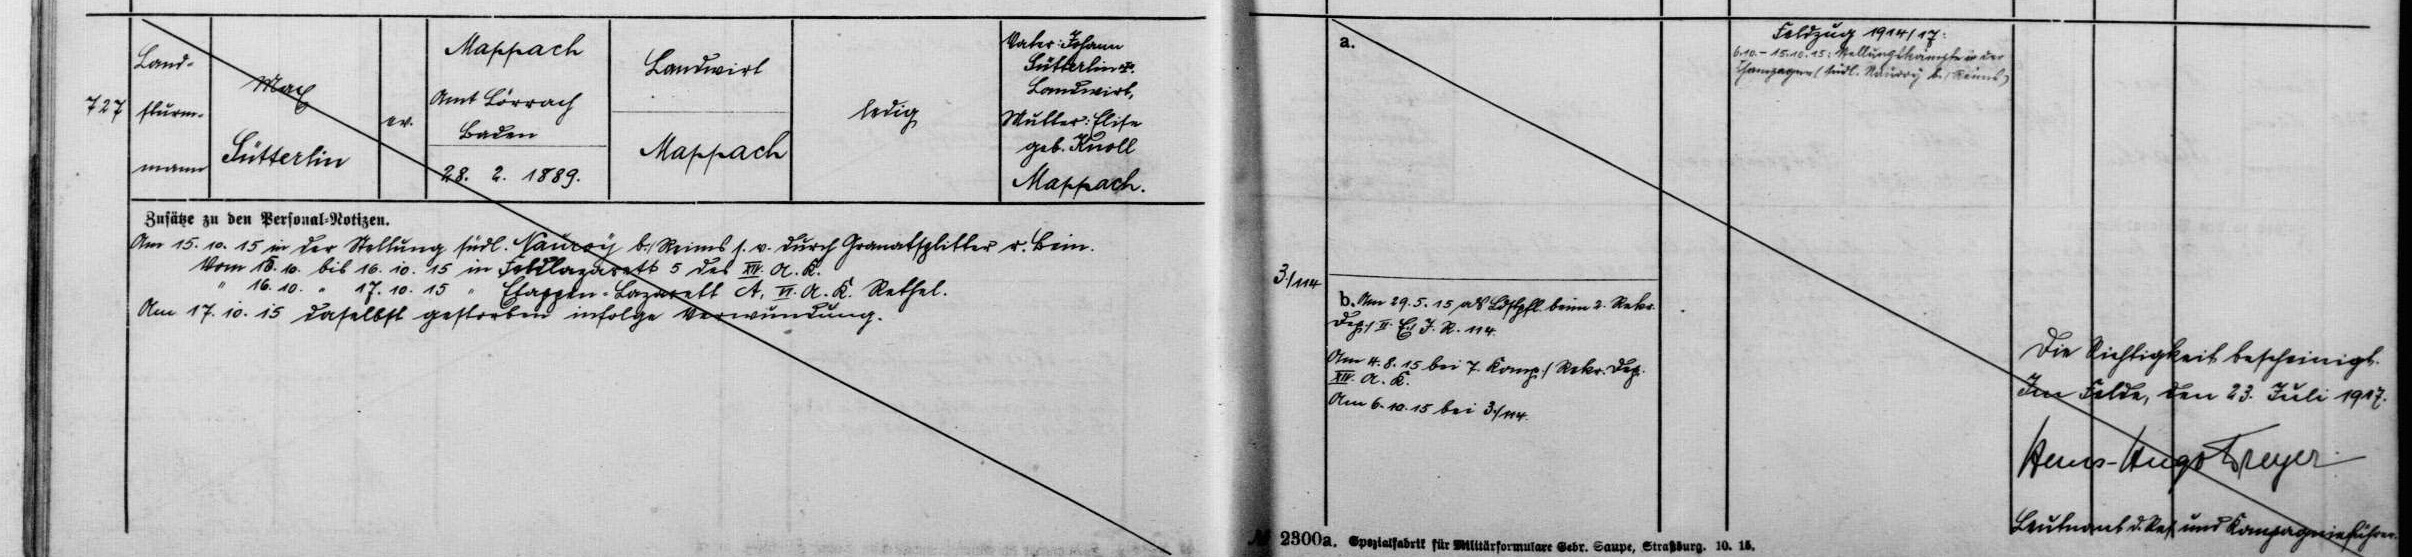 727
Land-
sturm-
mann
Max
Sütterlin
ev.
Mappach
Amt Lörrach
Baden
28. 2. 1889.
Landwirt
Mappach
ledig
Vater: Johann
Sütterlin
Landwirt,
Mutter: Elise
geb. Knoll
Mappach.
Zusätze zu den Personal-Notizen.
Am 15. 10. 15 in der Stellung südl. Nauroy b./Reims s. v. durch Granatsplitter r. Bein.
Vom 15. 10. bis 16. 10. 15 in Feldlazarett 5 des XIV. A. K.
" 16. 10. " 17. 10. 15 " Etappen-Lazarett A, VI. A. K. Rethel.
Am 17. 10. 15 daselbst gestorben infolge Verwundung.
3./114
a.
b. Am 29. 5. 15 als Ldstpfl. beim 2. Rekr.
Dep./ II. E./ J. R. 114.
Am 4. 8. 15 bei 7. Komp./ Rekr. Dep.
XIV. A. K.
Am 6. 10. 15 bei 3./114.
Feldzug 1914/17:
6.10.– 15.10.15: Stellungskämpfe in der
Champagne (südl. Nauroy b./ Reims)
Die Richtigkeit bescheinigt.
Im Felde, den 23. Juli 1917.
Hans-Hugo
Leutnant d. Res. und Kompagnieführer.
№ 2300a. Spezialfabrik für Militärformulare Gebr. Saupe, Straßburg. 10. 15.